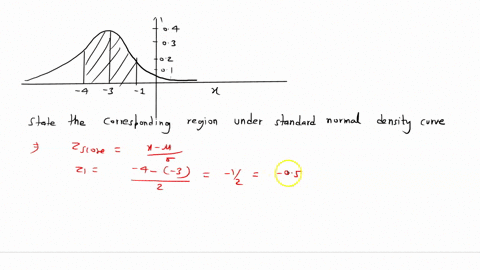 1
0.4
0.3
0.2
0.1
-4 -3 -1 x
State the corresponding region under standard normal density curve
⇒ Zscore = x-μ/σ
z1 = -4-(-3)/2 = -1/2 = -0.5